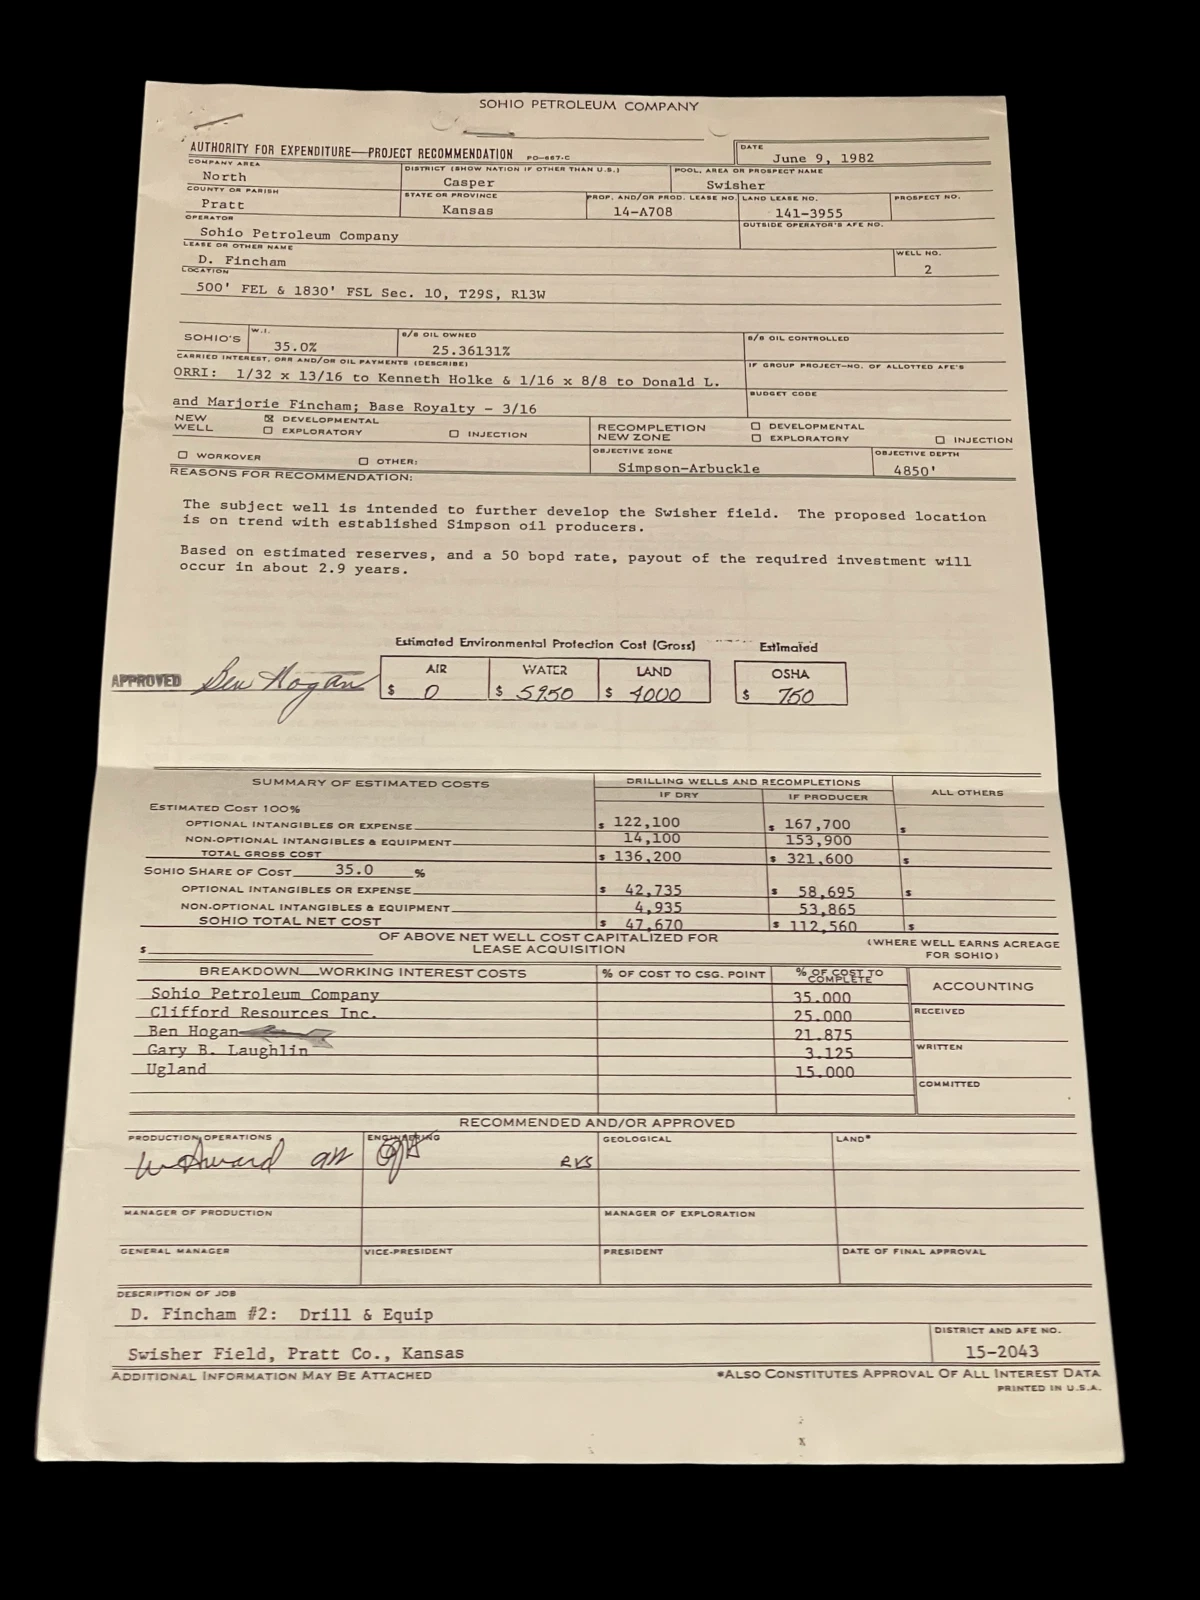 SOHIO PETROLEUM COMPANY
AUTHORITY FOR EXPENDITURE—PROJECT RECOMMENDATION PO-667-C
DATE
June 9, 1982
COMPANY AREA
North
DISTRICT (SHOW NATION IF OTHER THAN U.S.)
Casper
POOL, AREA OR PROSPECT NAME
Swisher
COUNTY OR PARISH
Pratt
STATE OR PROVINCE
Kansas
PROP. AND/OR PROD. LEASE NO.
14-A708
LAND LEASE NO.
141-3955
PROSPECT NO.
OPERATOR
Sohio Petroleum Company
OUTSIDE OPERATOR'S AFE NO.
LEASE OR OTHER NAME
D. Fincham
WELL NO.
2
LOCATION
500' FEL & 1830' FSL Sec. 10, T29S, R13W
SOHIO'S
W.I.
35.0%
8/8 OIL OWNED
25.36131%
8/8 OIL CONTROLLED
CARRIED INTEREST, ORR AND/OR OIL PAYMENTS (DESCRIBE)
ORRI: 1/32 x 13/16 to Kenneth Holke & 1/16 x 8/8 to Donald L.
and Marjorie Fincham; Base Royalty - 3/16
IF GROUP PROJECT—NO. OF ALLOTTED AFE'S
BUDGET CODE
NEW WELL
☒ DEVELOPMENTAL
☐ EXPLORATORY
☐ INJECTION
RECOMPLETION NEW ZONE
☐ DEVELOPMENTAL
☐ EXPLORATORY
☐ INJECTION
☐ WORKOVER
☐ OTHER:
OBJECTIVE ZONE
Simpson-Arbuckle
OBJECTIVE DEPTH
4850'
REASONS FOR RECOMMENDATION:
The subject well is intended to further develop the Swisher field. The proposed location
is on trend with established Simpson oil producers.
Based on estimated reserves, and a 50 bopd rate, payout of the required investment will
occur in about 2.9 years.
Estimated Environmental Protection Cost (Gross)
Estimated
APPROVED Ben Hogan
AIR WATER LAND OSHA
$ 0 $ 5950 $ 4000 $ 750
SUMMARY OF ESTIMATED COSTS
DRILLING WELLS AND RECOMPLETIONS
IF DRY IF PRODUCER ALL OTHERS
ESTIMATED COST 100%
OPTIONAL INTANGIBLES OR EXPENSE $ 122,100 $ 167,700 $
NON-OPTIONAL INTANGIBLES & EQUIPMENT 14,100 153,900
TOTAL GROSS COST $ 136,200 $ 321,600 $
SOHIO SHARE OF COST 35.0 %
OPTIONAL INTANGIBLES OR EXPENSE $ 42,735 $ 58,695 $
NON-OPTIONAL INTANGIBLES & EQUIPMENT 4,935 53,865
SOHIO TOTAL NET COST $ 47,670 $ 112,560 $
$ OF ABOVE NET WELL COST CAPITALIZED FOR LEASE ACQUISITION
(WHERE WELL EARNS ACREAGE FOR SOHIO)
BREAKDOWN—WORKING INTEREST COSTS % OF COST TO CSG. POINT % OF COST TO COMPLETE
Sohio Petroleum Company 35.000
Clifford Resources Inc. 25.000
Ben Hogan 21.875
Gary B. Laughlin 3.125
Ugland 15.000
ACCOUNTING
RECEIVED
WRITTEN
COMMITTED
RECOMMENDED AND/OR APPROVED
PRODUCTION OPERATIONS
ENGINEERING
RVS
GEOLOGICAL
LAND*
MANAGER OF PRODUCTION
MANAGER OF EXPLORATION
GENERAL MANAGER
VICE-PRESIDENT
PRESIDENT
DATE OF FINAL APPROVAL
DESCRIPTION OF JOB
D. Fincham #2: Drill & Equip
Swisher Field, Pratt Co., Kansas
DISTRICT AND AFE NO.
15-2043
ADDITIONAL INFORMATION MAY BE ATTACHED
*ALSO CONSTITUTES APPROVAL OF ALL INTEREST DATA
PRINTED IN U.S.A.